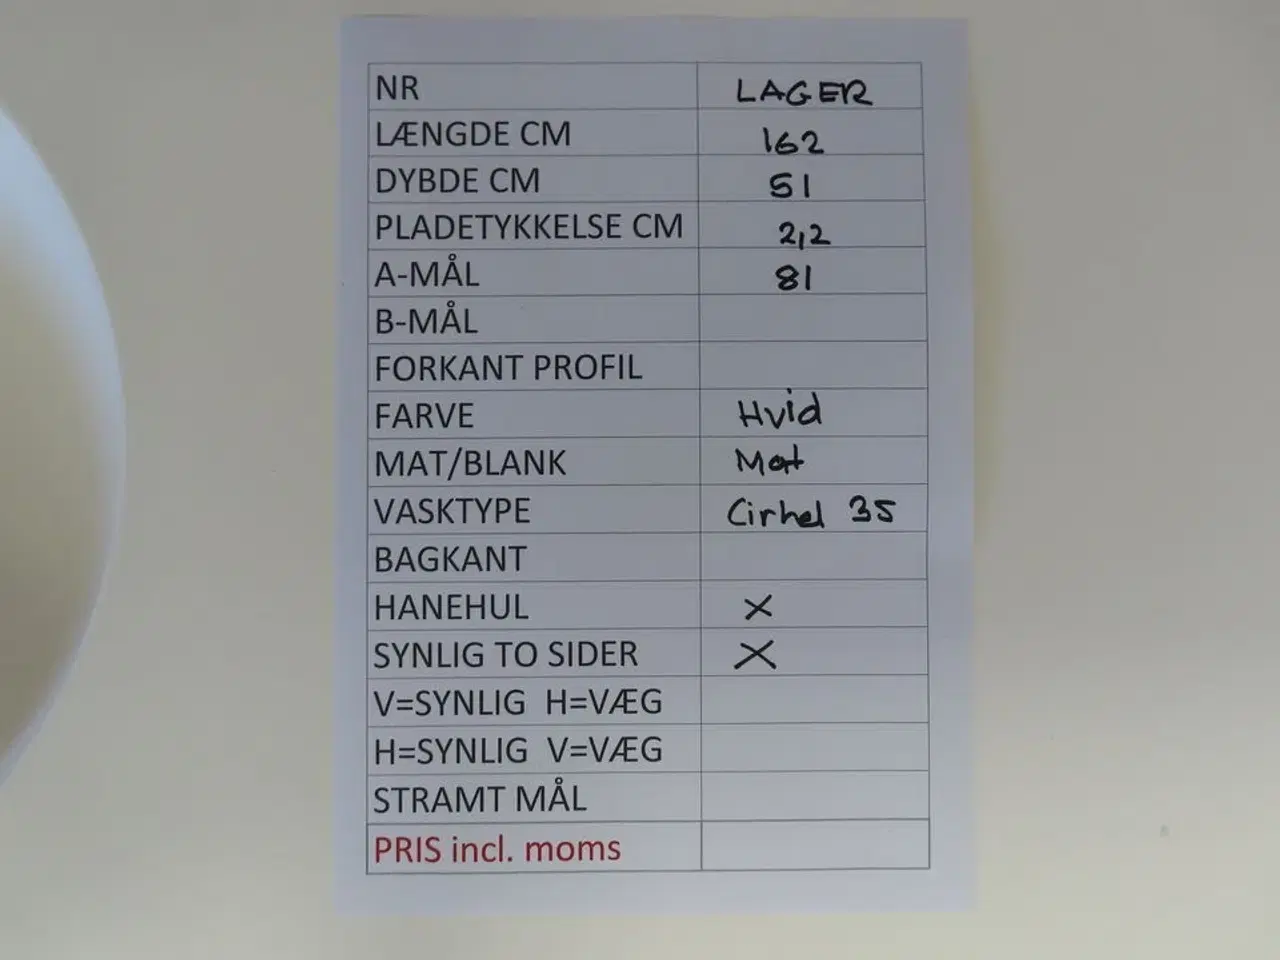 NR LAGER
LÆNGDE CM 162
DYBDE CM 51
PLADETYKKELSE CM 2,2
A-MÅL 81
B-MÅL
FORKANT PROFIL
FARVE Hvid
MAT/BLANK Mat
VASKTYPE Cirkel 35
BAGKANT
HANEHUL X
SYNLIG TO SIDER X
V=SYNLIG H=VÆG
H=SYNLIG V=VÆG
STRAMT MÅL
PRIS incl. moms